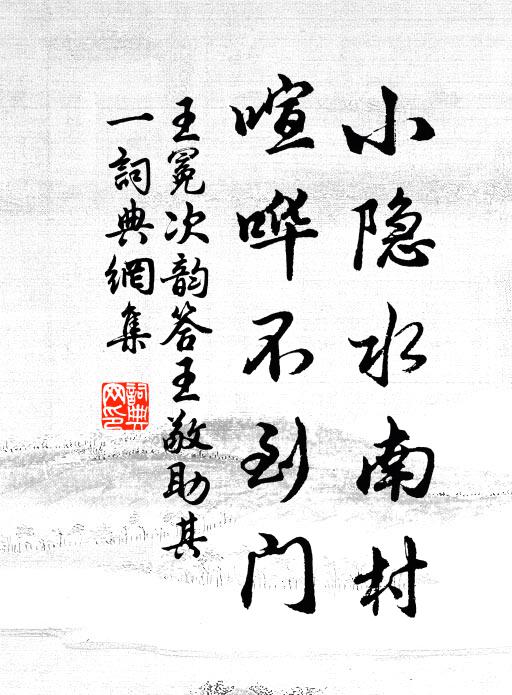 小隐水南村
喧哗不到门
王冕次韵答王敬助其
一詞典網集
詞典網印